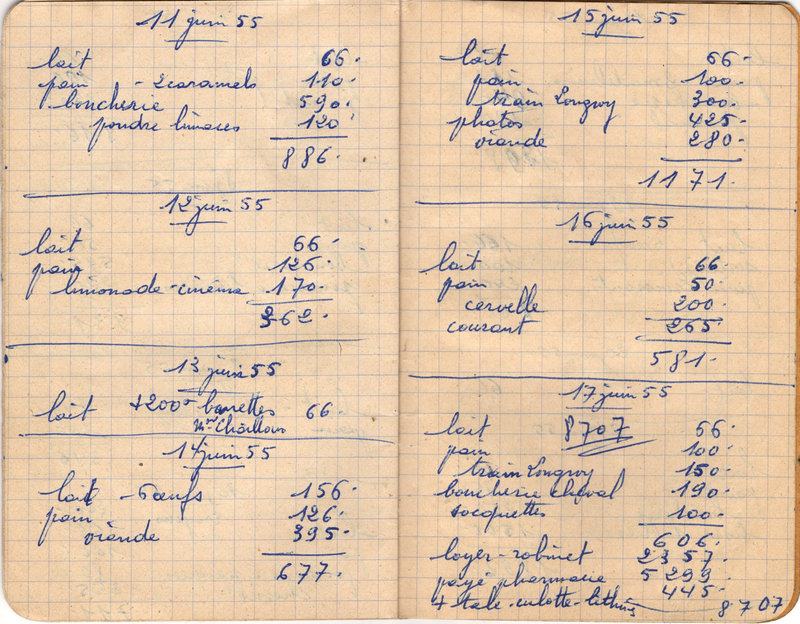 11 juin 55
lait 66.
pain - 2 caramels 110.
boucherie 590.
poudre limaces 120.
886.
12 juin 55
lait 66.
pain 126.
limonade - cinéma 170.
362.
13 juin 55
lait +200 barrettes 66.
Mme Chaillous
14 juin 55
lait - 6 oeufs 156.
pain 126.
viande 395.
677.
15 juin 55
lait 66.
pain 100.
train Longwy 300.
photos 425.
viande 280.
1171.
16 juin 55
lait 66.
pain 50.
cervelle 200.
courant 265.
581.
17 juin 55
lait 8707 66.
pain 100.
train Longwy 150.
boucherie cheval 190.
socquettes 100.
606.
loyer - robinet 2357.
payé pharmacie 5299.
445.
+ talc - culotte - lithinés 8707